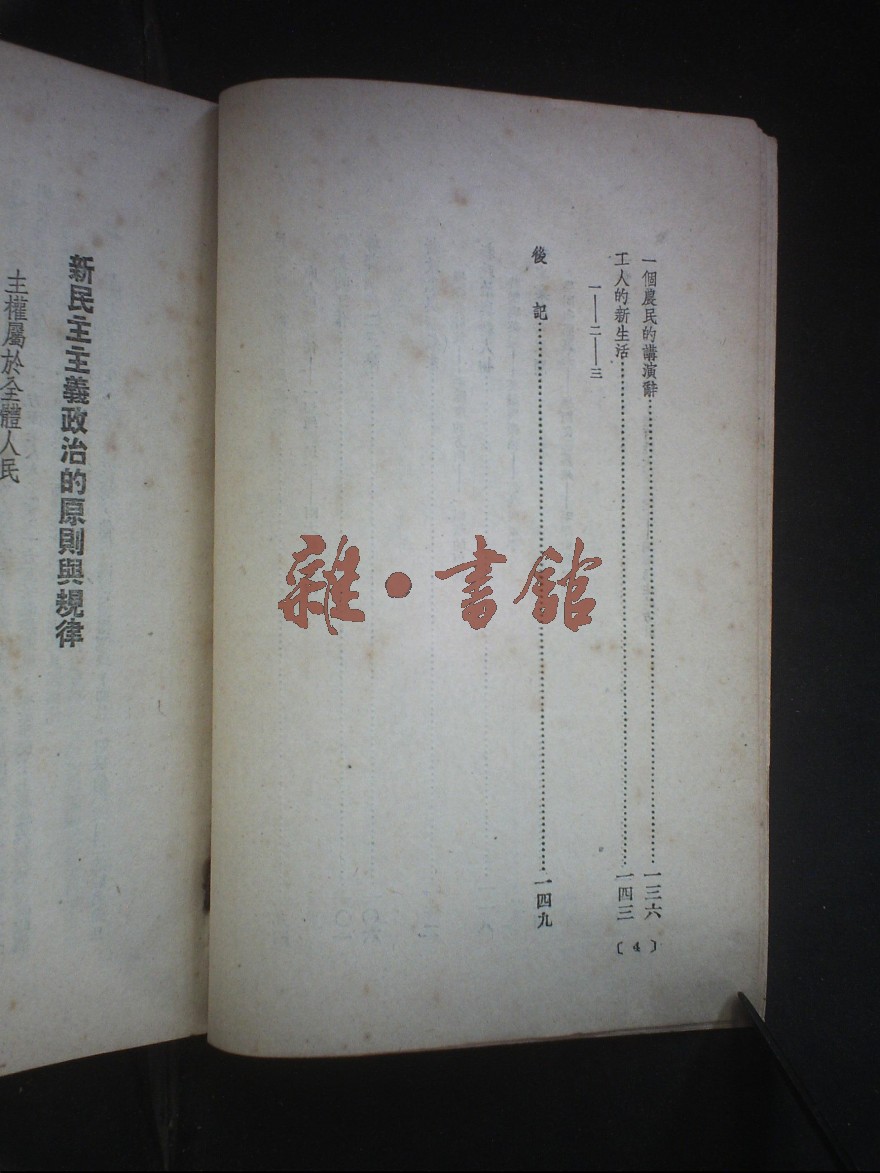 一個農民的講演辭……………一三六
工人的新生活……………一四三
一——二——三
後記……………一四九
〔4〕
新民主主義政治的原則與規律
主權屬於全體人民
雜·書館